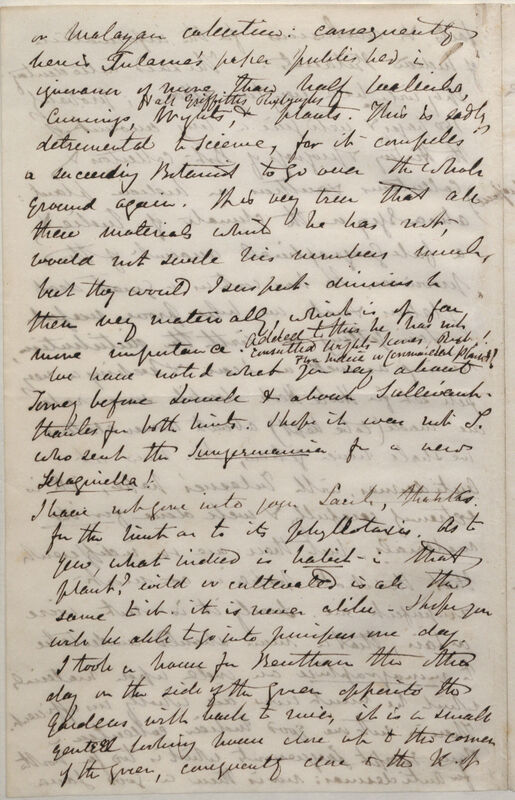 or Malayan collection: consequently
here is Tulasne's paper published in
ignorance of more than half
Hall Griffiths Roxburghs
Cumings, Wights, & plants. This is sadly
detrimental to science, for it compels
a succeeding Botanist to go over the whole
ground again. It is very true that all
these materials which he has not,
would not swell his numbers much,
but they would I suspect diminish
them very materially which is of far
more importance. Added to this he has not
consulted Wights Icones
We have noted what you say about
Torrey before & about Sullivant
thanks for both hints. I hope it was not S.
who sent the Jungermannia for a new
Selaginella!
I have not gone into thanks
for the hint as to its phyllotaxis. As to
Yew, what indeed is habit in that
plant? wild or cultivated is all the
same to it it is never alike - I hope you
will be able to go into junipers one day.
I took a house for Bentham the other
day on the side of the green opposite the
Gardens with back to river, it is a small
genteel looking house close up to the corner
of the green, consequently close to the K. of